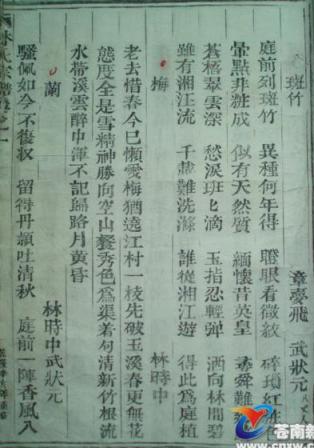 斑竹
章夢飛 武狀元
庭前列斑竹 異種何年得 聰眼看微紋 碎瑣紅
暈點非粧成 似有天然質 緬懷昔英皇 尋舜難
蒼梧翠雲深 愁淚班ヒ滴 玉指忍輕彈 洒向林間碧
雖有湘江流 千載難洗滌 誰從湘江遊 得此為庭植
梅
林時中
老去惜春今已懶愛梅猶遶江村一枝先破玉溪春更無花
態度全是雪精神勝向空山餐秀色為渠着句清新竹根流
水帶溪雲醉中渾不記歸路月黃昏
蘭
林時中武狀元
騷佩如今不復紉 留得丹頴吐清秋 庭前一陣香風八
蒼南新